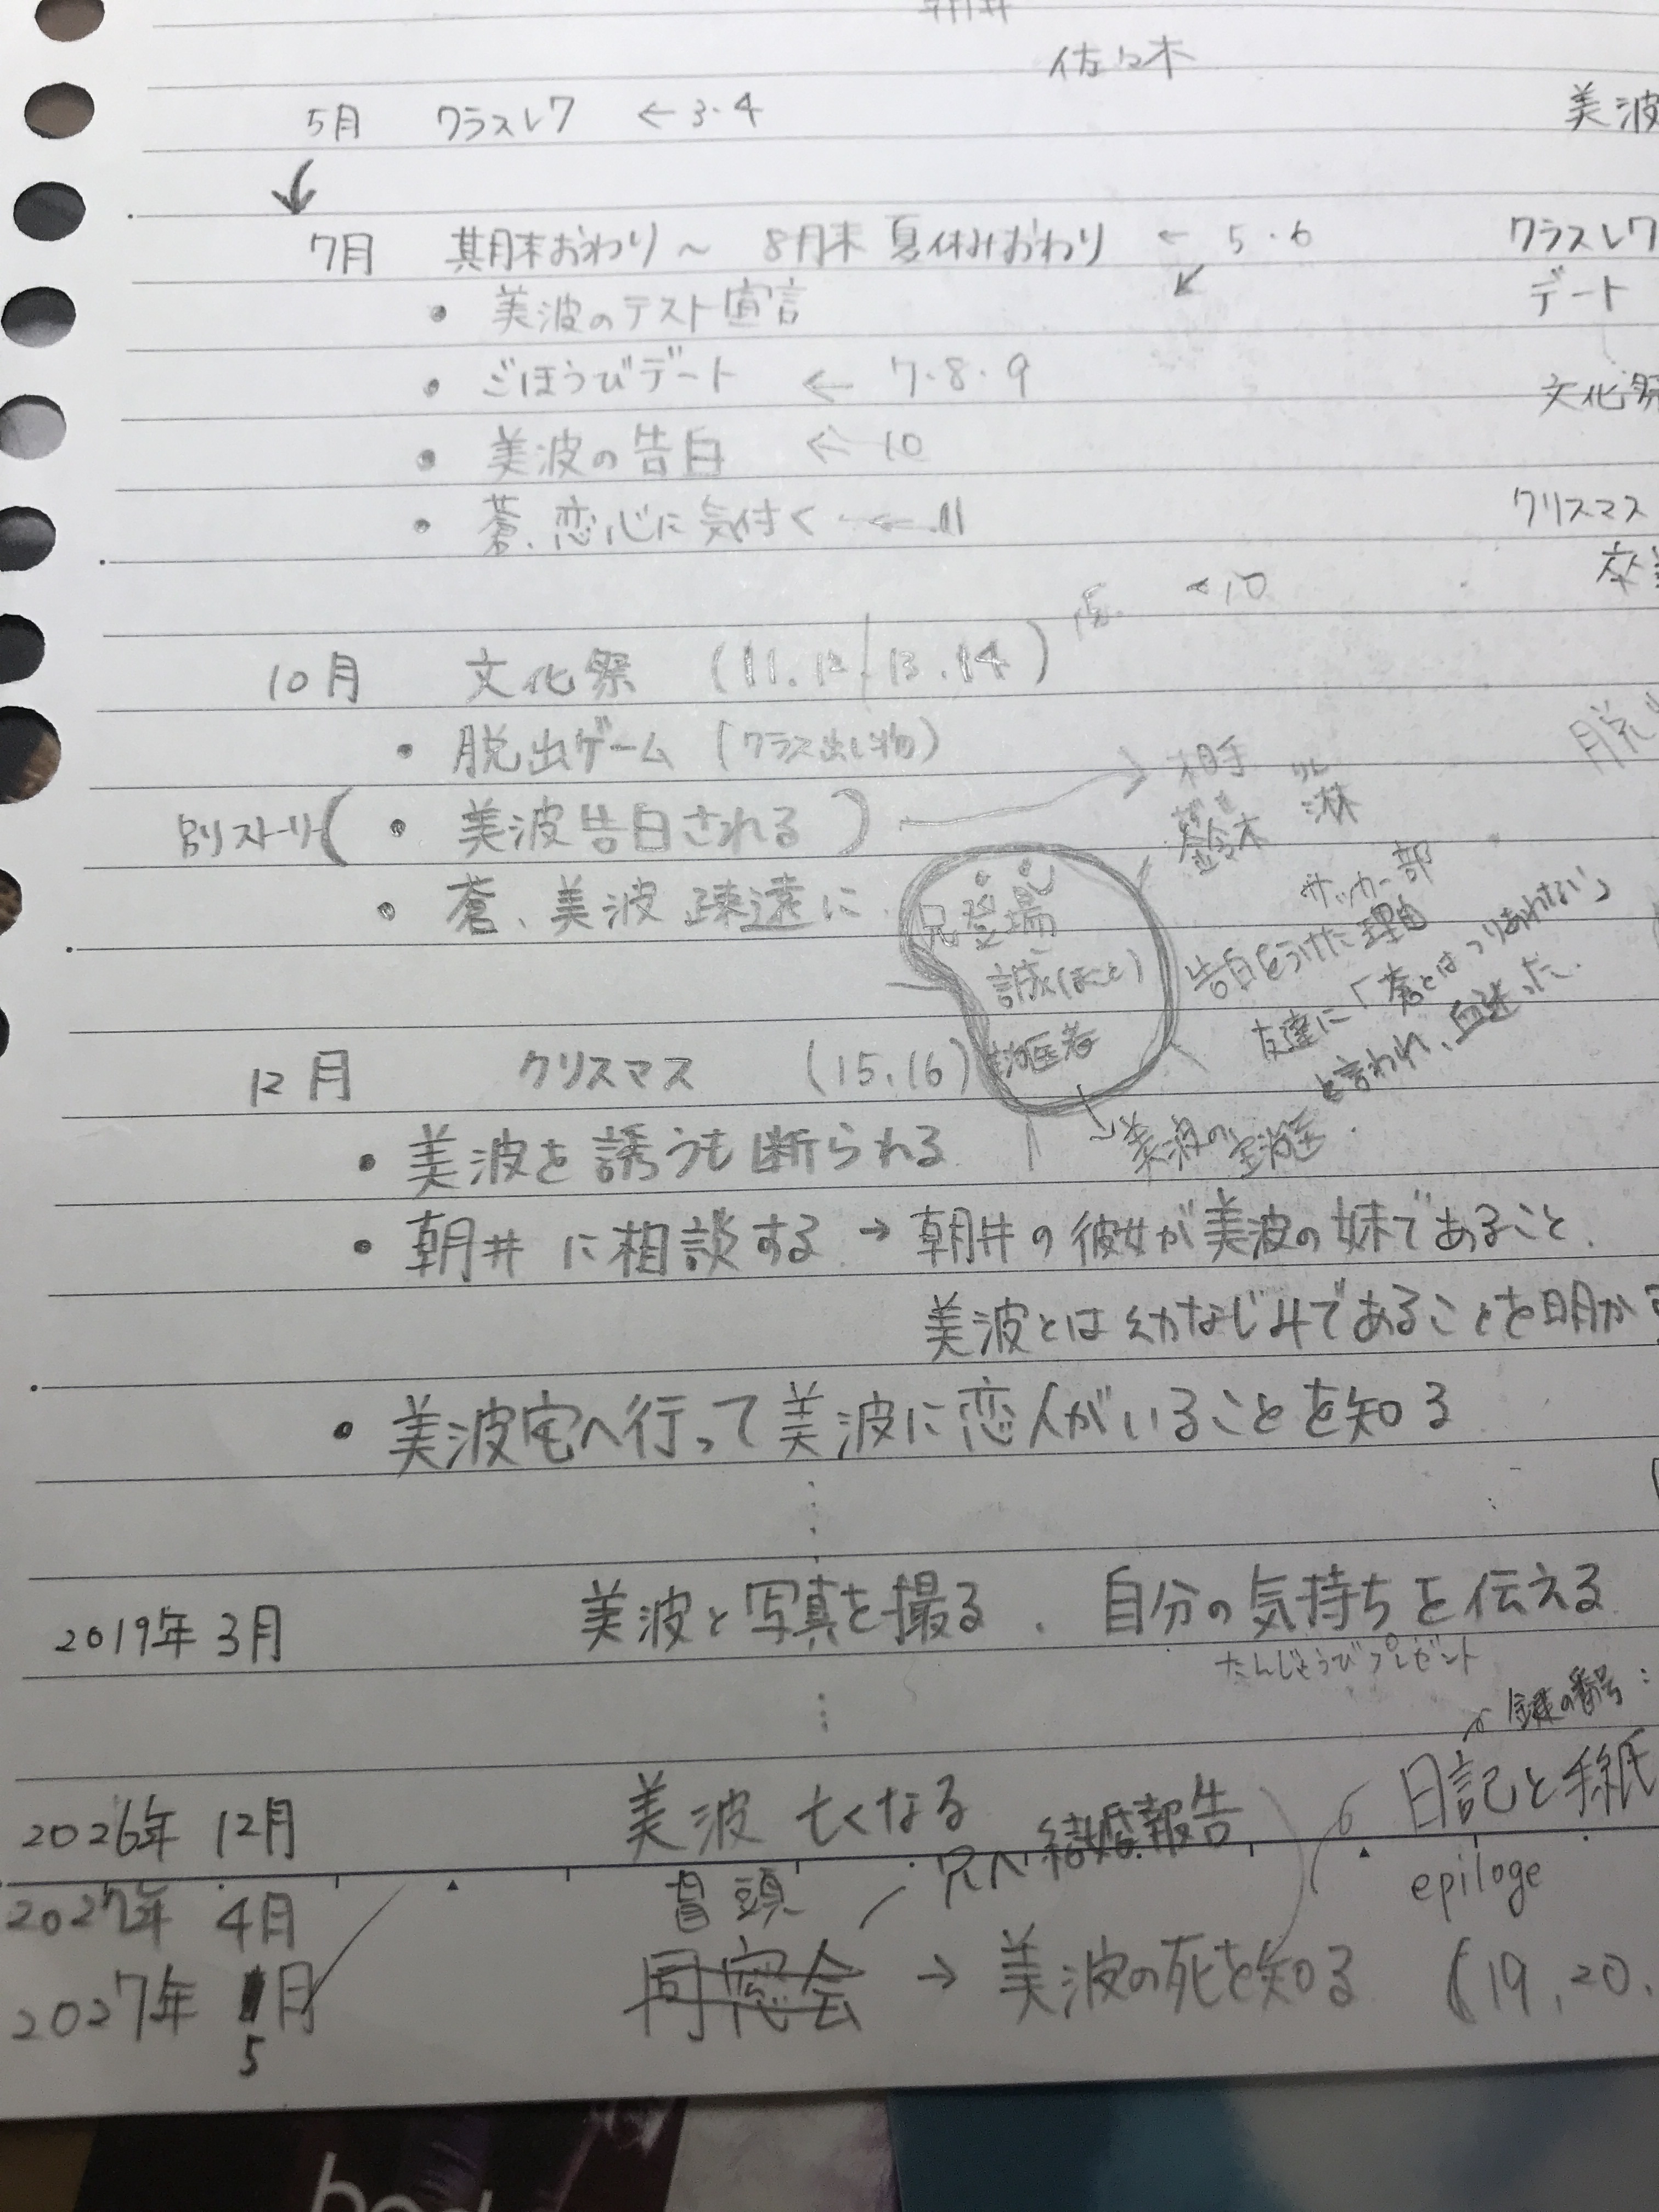 朝井
佐々木
5月 クラスレク ←3・4
美波
7月 期末おわり〜 8月末 夏休みおわり ← 5・6
クラスレク
・ 美波のテスト宣言
デート
・ ごほうびデート ← 7・8・9
文化祭
・ 美波の告白 ← 10
・ 蒼、恋心に気付く ← 11
クリスマス
卒業
←10
10月 文化祭 (11.12/13.14)
・ 脱出ゲーム (クラス出し物)
脱
別ストーリー( ・ 美波告白される ) → 相手
鈴木 淋
サッカー部
・ 蒼、美波 疎遠に
告白をうけた理由
友達に「蒼とはつりあわない」
と言われ、血迷った.
兄登場
誠(まこと)
医者
→美波の主治医.
12月 クリスマス (15.16)
・ 美波を誘うも断られる
・ 朝井に相談する → 朝井の彼女が美波の妹であること.
美波とは幼なじみであることを明かす
・ 美波宅へ行って美波に恋人がいることを知る
2019年 3月 美波と写真を撮る. 自分の気持ちを伝える
たんじょうびプレゼント
鍵の番号:
2026年 12月 美波 亡くなる 日記と手紙
2027年 4月 冒頭 兄へ結婚報告 epiloge
2027年 5月 同窓会 → 美波の死を知る (19,20.